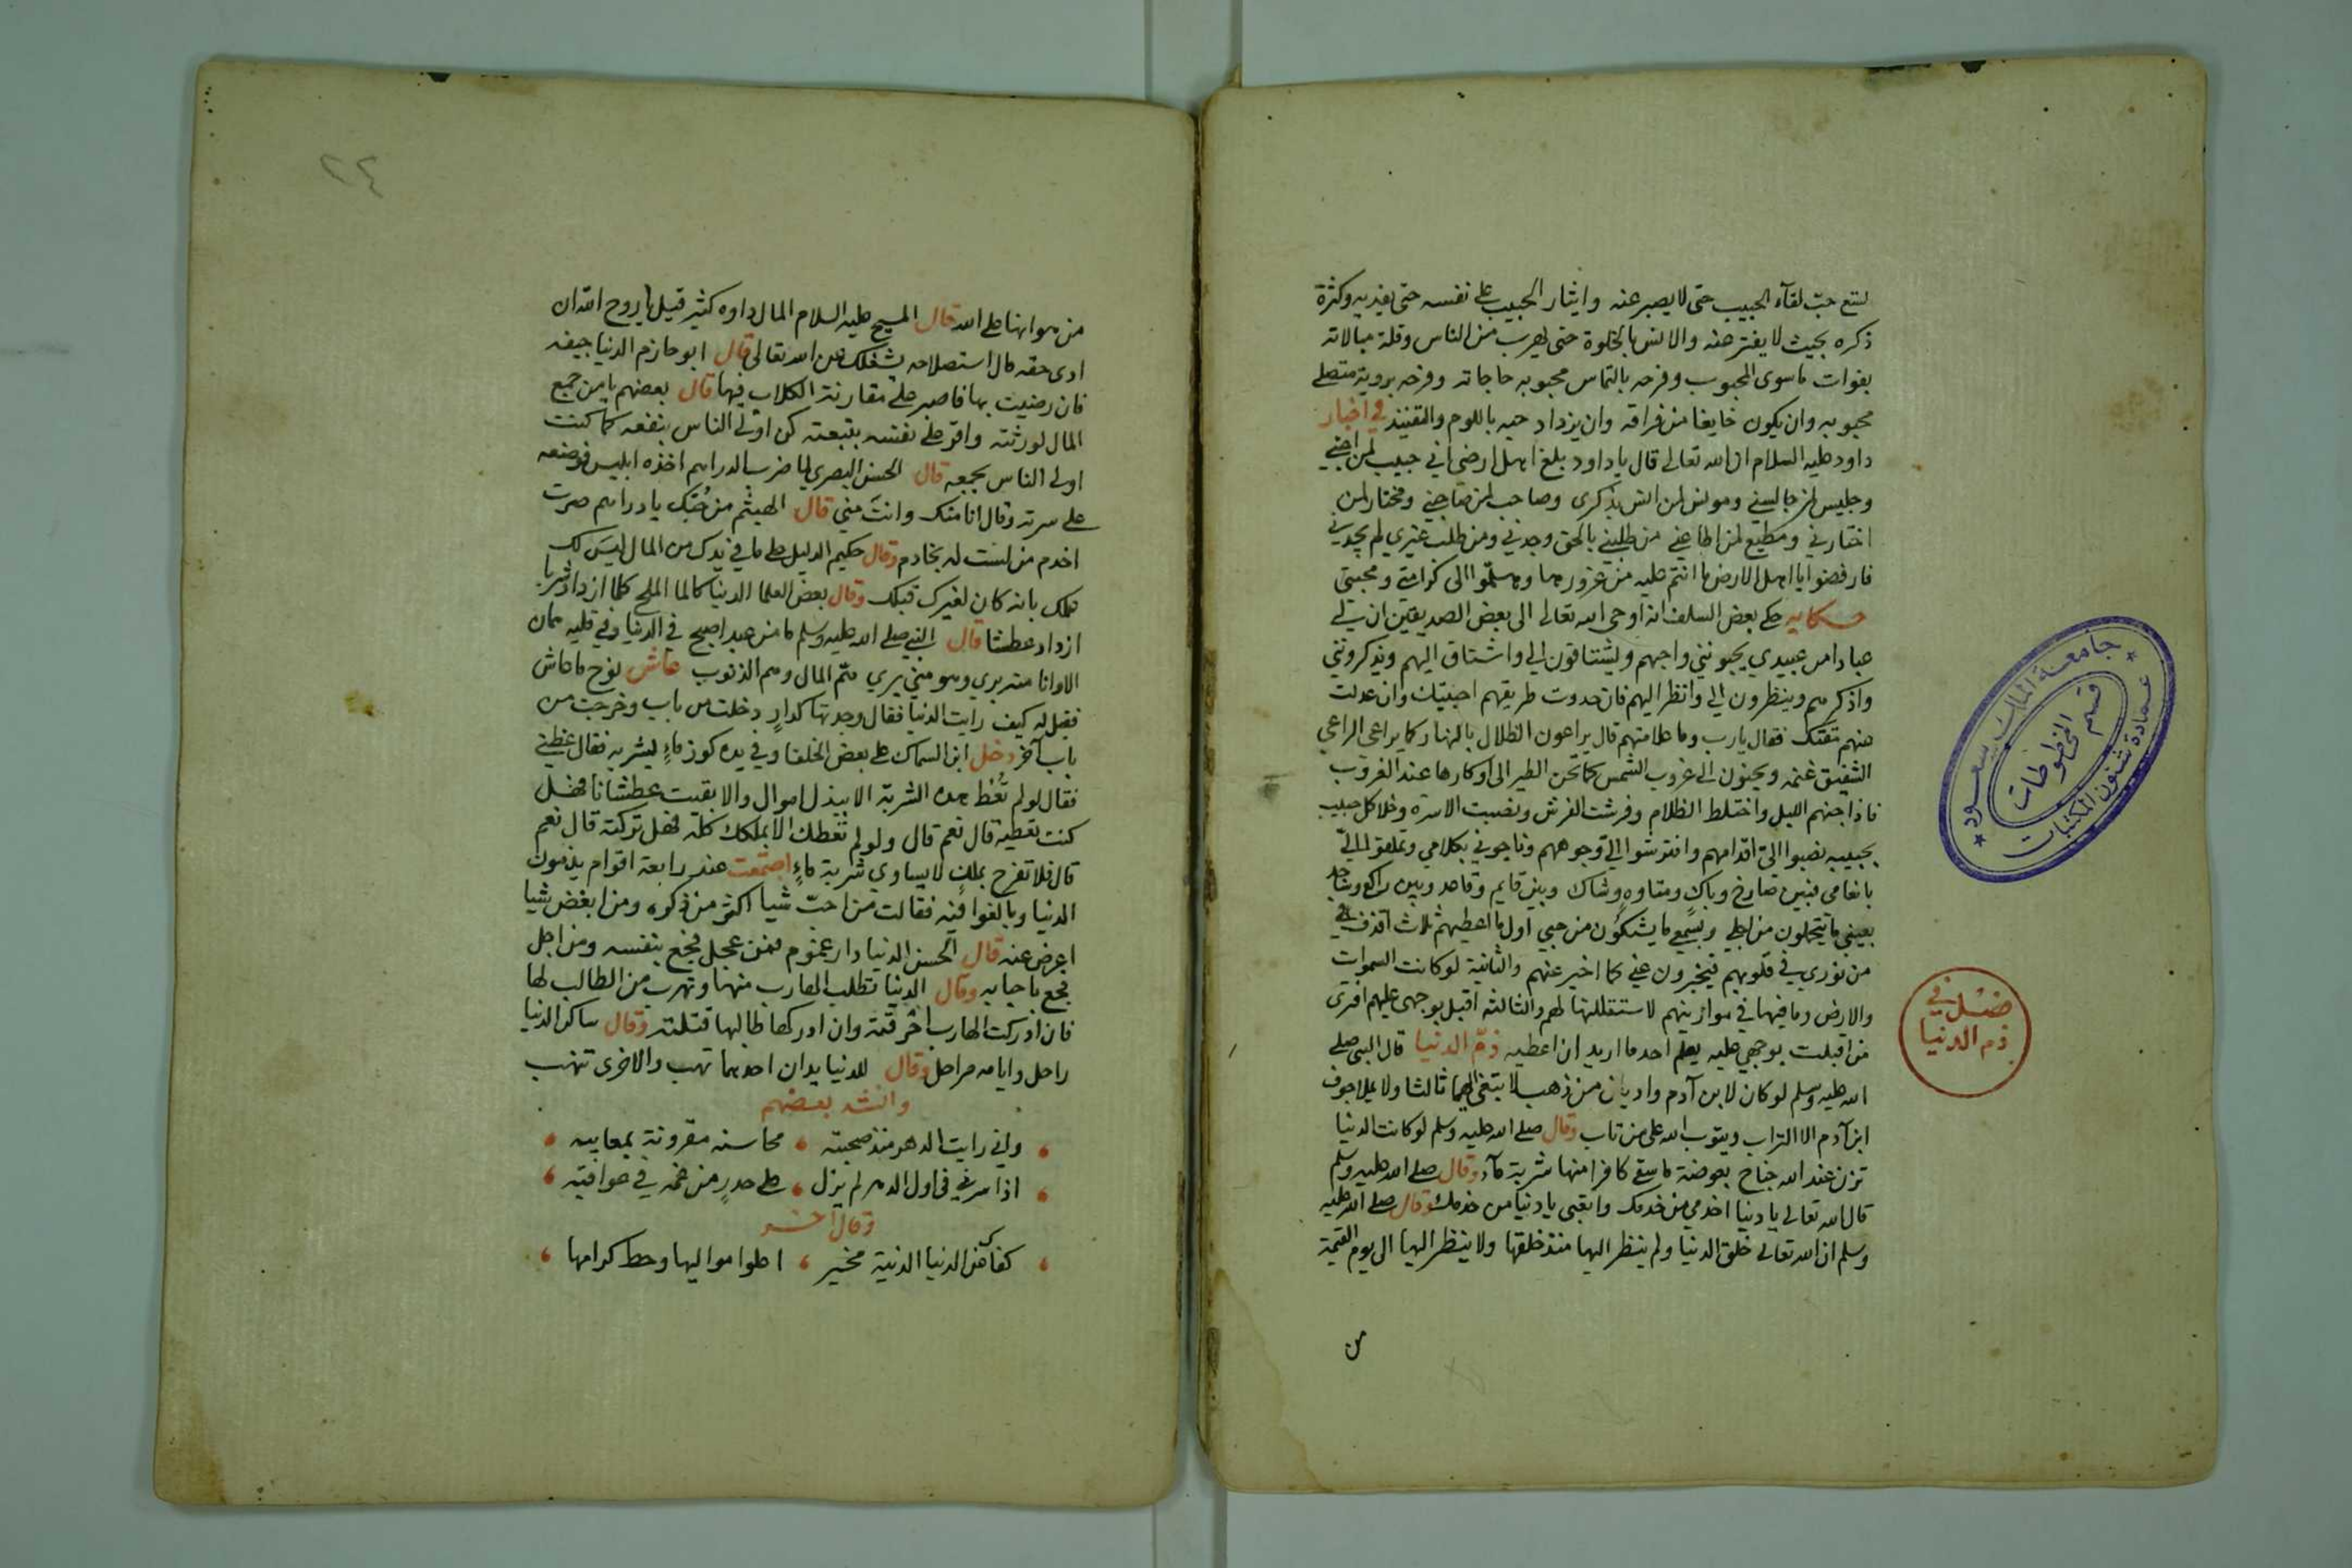 حب لقآء الحبيب حتى لا يصبر عنه وايثار الحبيب على نفسه حتى يفديه وكثرة
ذكره بحيث لا يفتر عنه والانس بالخلوة حتى يهرب من الناس وقلة مبالاته
بفوات ما سوى المحبوب وفرحه بالتماس محبوبه حاجاته وفرحه بروية
محبوبه وان يكون خايفا من فراقه وان يزداد حبه باللوم والتفنيد في اخبار
داود عليه السلام ان الله تعالى قال يا داود بلغ اهل ارضي اني حبيب لمن احبني
وجليس لمن جالسني ومونس لمن انس بذكرى وصاحب لمن صاحبني ومختار لمن
اختارني ومطيع لمن اطاعني من طلبني بالحق وجدني ومن طلب غيري لم يجدني
فارفضوا يا اهل الارض ما انتم عليه من غرورها وهلموا الى كرامتي ومحبتي
حكايه حكي بعض السلف ان اوحى الله تعالى الى بعض الصديقين ان لي
عبادا من عبيدي يحبونني واحبهم ويشتاقون الي واشتاق اليهم ويذكرونني
واذكرهم وينظرون الي وانظر اليهم فان حدوت طريقهم احببتك وان عدلت
عنهم مقتك فقال يارب وما علامتهم قال يراعون الظلال بالنهار كما يراعى الراعي
الشفيق غنمه ويحنون الى غروب الشمس كما تحن الطير الى اوكارها عند الغروب
فاذا جنهم الليل واختلط الظلام وفرشت الفرش ونصبت الاسرة وخلا كل حبيب
بحبيبه نصبوا الي اقدامهم وافترشوا الي وجوههم وناجوني بكلامي وتملقوا الي
بانعامي فبين صارخ وباك ومتاوه وشاك وبين قايم وقاعد وبين راكع وساجد
بعيني ما يتحملون من اجلي وبسمعي ما يشكون من حبي اول ما اعطيهم ثلاث اقذف
من نوري في قلوبهم فيخبرون عني كما اخبر عنهم والثانية لو كانت السموات
والارض وما فيها في موازينهم لاستقللتها لهم والثالثه اقبل بوجهى عليهم افترى
من اقبلت بوجهي عليه يعلم احد ما اريد ان اعطيه ذم الدنيا قال النبي صلى
الله عليه وسلم لو كان لابن آدم واديان من ذهب لابتغى اليهما ثالثا ولا يملا جوف
ابن آدم الا التراب ويتوب الله على من تاب وقال صلى الله عليه وسلم لو كانت الدنيا
تزن عند الله جناح بعوضة ما سقى كافرا منها شربة مآء وقال صلى الله عليه وسلم
قال الله تعالى يا دنيا اخدمي من خدمك واتعبي يا دنيا من خدمك وقال صلى الله عليه
وسلم ان الله تعالى خلق الدنيا ولم ينظر اليها منذ خلقها ولا ينظر اليها الى يوم القيمة
من
فصل في
ذم الدنيا
جامعة الملك سعود
قسم المخطوطات
عمادة شئون المكتبات
٢٤
من هوانها على الله قال المسيح عليه السلام المال داوه كثير قيل يا روح الله ان
ادى حقه قال استصلاحه يشغلك عن الله تعالى قال ابو حازم الدنيا جيفه
فان رضيت بها فاصبر على مقارنة الكلاب فيها قال بعضهم يا من جمع
المال لورثته واقر على نفسه بتبعته كن اولى الناس بنفعه كما كنت
اولى الناس بجمعه قال الحسن البصري لما ضرب الدراهم اخذه ابليس فوضعه
على سرته وقال انا منك وانت مني قال الهيثم من حبك يا دراهم صرت
اخدم من لست له بخادم وقال حكيم الدليل على ما في يدك من المال ليس لك
علمك بانه كان لغيرك قبلك وقال بعض العلما الدنيا كالما الملح كلما ازداد شربا
ازداد عطشا قال النبي صلى الله عليه وسلم ما من عبد اصبح في الدنيا وفي قلبه
الا وانا منه بري وهو مني بري هم المال وهم الذنوب عاش نوح ما عاش
فقيل له كيف رايت الدنيا فقال وجدتها كدار دخلت من باب وخرجت من
باب آخر دخل ابن السماك على بعض الخلفا وفي يده كوز ماء ليشربه فقال عظني
فقال لو لم تعط هذه الشربة الا ببذل اموال والا بقيت عطشانا فهل
كنت تعطيه قال نعم قال ولو لم تعطك الا بملكك كله فهل تركته قال نعم
قال فلا تفرح بملك لا يساوي شربة ماء اجتمعت عند رابعة اقوام يذمون
الدنيا وبالغوا فيه فقالت من احب شيا اكثر من ذكره ومن ابغض شيا
اعرض عنه قال الحسن الدنيا دار غموم فمن عجل فجع بنفسه ومن اجل
فجع باحبابه وقال الدنيا تطلب الهارب منها وتهرب من الطالب لها
فان ادركت الهارب احرقته وان ادركها طالبها قتلته وقال ساكن الدنيا
راحل وايامه مراحل وقال للدنيا يدان احدهما تهب والاخرى تنهب
وانشد بعضهم
واني رايت الدهر منذ صحبته ، محاسنه مقرونة بمعايبه
اذا سرني في اول الدهر لم يزل ، على حذر من غمه في عواقبه
وقال آخر
كفاك من الدنيا الدنية مخبر ، اعلوا مواليها وحط كرامها